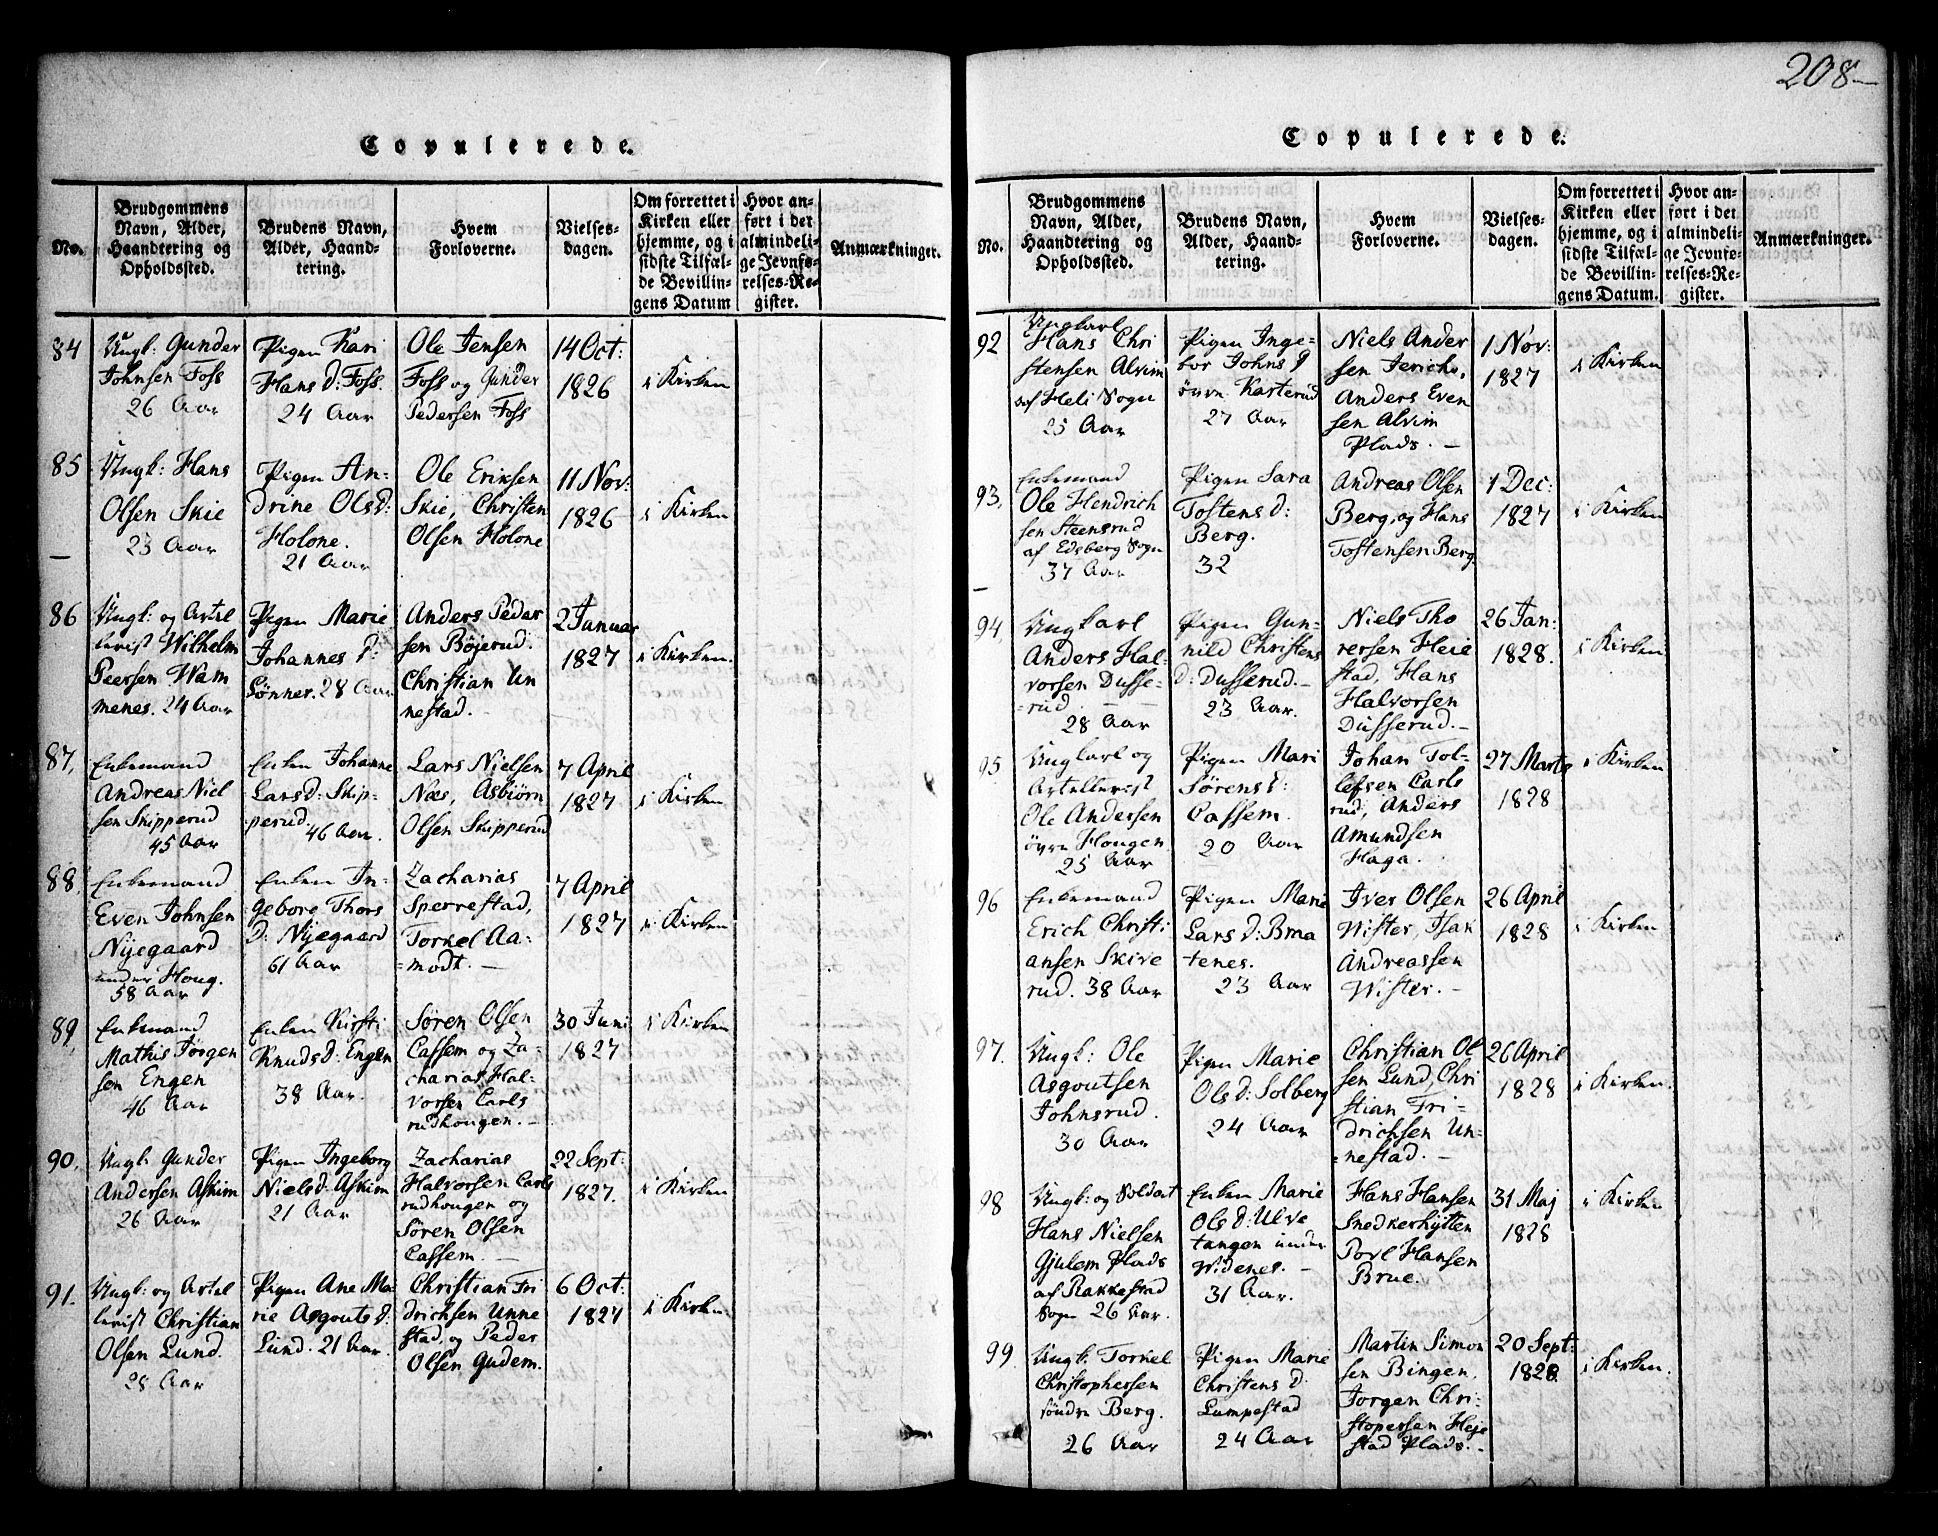 208
Copulerede.
No.
Brudgommens
Navn, Alder,
Haandtering og
Opholdssted.
Brudens Navn,
Alder, Haand-
tering.
Hvem
Forloverne.
Vielses-
dagen.
Om forrettet i
Kirken eller
hjemme, og i
sidste Tilfæl-
de Bevillin-
gens Datum
Hvor an-
ført i det
almindeli-
ge Jevnfø-
relses-Re-
gister.
Anmærkninger.
84
Ungk: Gunder
Johnsen Foss
26 Aar
Pigen Kari
Hans d: Foss.
24 Aar
Ole Jensen
Foss og Gunder
Pedersen Foss
14 Oct:
1826
i Kirken
85
Ungk: Hans
Olsen Skie
23 Aar
Pigen An-
drine Olsd:
Holone.
21 Aar
Ole Eriksen
Skie, Christen
Olsen Holone
11 Nov:
1826
i Kirken
86
Ungk: og Artil
lerist Wilhelm
Peersen Wam
menes. 24 Aar
Pigen Marie
Johannes d:
Sønner. 28 Aar
Anders Peder
sen Böjerud.
Christian Un
nestad.
2 Januar
1827
i Kirken.
87,
Enkemand
Andreas Niel
sen Skipperud
45 Aar
Enken Johanne
Larsd: Skip-
perud.
46 Aar.
Lars Nielsen
Næs, Asbiörn
Olsen Skipperud
7 April
1827
i Kirken
88,
Enkemand
Even Johnsen
Nyegaard
under Houg.
58 Aar
Enken In-
geborg Thors
d: Nyegaard
61 Aar
Zacharias
Sperrestad,
Torkel Aa-
=modt. —
7 April
1827
i Kirken
89,
Enkemand
Mathis Jørgen
sen Engen
46 Aar
Enken Kirsti
Knudsd: Engen
38 Aar.
Søren Olsen
Cassem og Za-
charias Hal-
vorsen Carls
rudhougen. —
30 Juni
1827
i Kirken
90,
Ungk: Gunder
Andersen Askim
26 Aar
Pigen Ingeborg
Nielsd: Askim
21 Aar
Zacharias
Halvorsen Carls
rudhougen og
Søren Olsen
Cassem. —
22 Sept:
1827.
i Kirken
91.
Ungk: og Artil
lerist Christian
Olsen Lund.
28 Aar
Pigen Ane Ma-
rie Asgouts d:
Lund. 21 Aar.
Christian Fri
drichsen Unne
stad, og Peder
Olsen Gudem.
6 Oct:
1827
i Kirken
Copulerede.
No.
Brudgommens
Navn, Alder,
Haandtering og
Opholdssted.
Brudens Navn,
Alder, Haand-
tering.
Hvem
Forloverne.
Vielses-
dagen.
Om forrettet i
Kirken eller
hjemme, og i
sidste Tilfæl-
de Bevillin-
gens Datum.
Hvor an-
ført i det
almindeli-
ge Jevnfø-
relses-Re-
gister.
Anmærkninger.
92
Ungkarl
Hans Chri
stensen Alvim
af Heli Sogn
25 Aar
Pigen Inge-
bor Johns d
övre Karterud
27 Aar
Niels Ander
sen Jericho,
Anders Even
sen Alvim
Plads. —
1 Nov:
1827
i Kirken
93,
Enkemand
Ole Hendrich
sen Steensrud
af Edsberg Sogn
37 Aar
Pigen Sara
Tostens d:
Berg.
32
Andreas Olsen
Berg, og Hans
Tostensen Berg
1 Dec:
1827
i Kirken
94,
Ungkarl
Anders Hal-
vorsen Dusse-
=rud.
28 Aar
Pigen Gun-
nild Christens
d: Dusserud. —
23 Aar.
Niels Tho
rersen Heie
stad, Hans
Halvorsen
Dusserud. —
26 Jan:
1828.
i Kirken
95
Ungkarl og
Artellerist
Ole Andersen
öyre Hougen
25 Aar
Pigen Mari
Sørens d:
Cassem.
20 Aar
Johan Tol-
lefsen Carls
rud, Anders
Amundsen
Haga.
27 Marts
1828
i Kirken
96
Enkemand
Erich Christi
ansen Skive
rud. 38 Aar
Pigen Marie
Lars d: Braa
-tenes.
23 Aar
Iver Olsen
Wister, Isak
Andreassen
Wister. —
26 April
1828
i Kirken
97.
Ungk: Ole
Asgoutsen
Johnsrud.
30 Aar
Pigen Marie
Ols d: Solberg
24 Aar
Christian Ol
sen Lund, Chri
stian Fri-
drichsen Un=
=nestad. —
26 April
1828
i Kirken.
98
Ungk: og Soldat
Hans Nielsen
Gjulem Plads
af Rakkestad
Sogn 26 Aar.
Enken Marie
Ols d: Ulve
tangen under
Widenes. —
31 Aar.
Hans Hansen
Snedkerhytten
Povl Hansen
Brue.
31 Maj
1828
i Kirken
99.
Ungk: Torkel
Christophersen
söndre Berg.
26 Aar
Pigen Marie
Christens d:
Lumpestad
24 Aar
Martin Simon
sen Bingen,
Jorgen Chri-
stopersen Heje
stad Plads. -
20 Sept:
1828
i Kirken.